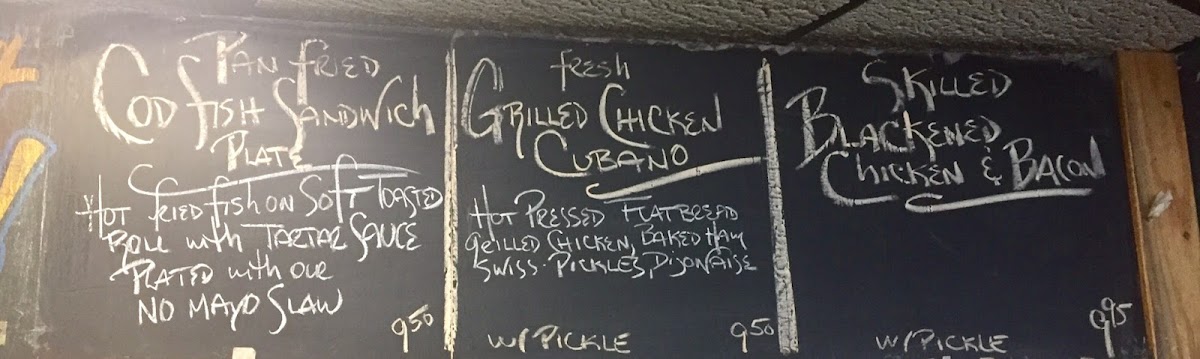 PAN FRIED
COD FISH SANDWICH
PLATE
HOT FRIED FISH ON SOFT TOASTED
ROLL with TARTAR SAUCE
PLATED with OUR
NO MAYO SLAW
9 50
fresh
GRILLED CHICKEN
CUBANO
HOT PRESSED FLATBREAD
GRILLED CHICKEN, BAKED HAM
SWISS · PICKLES, DIJONAISE
W/ PICKLE
9 50
SKILLED
BLACKENED
CHICKEN & BACON
W/ PICKLE
9 95